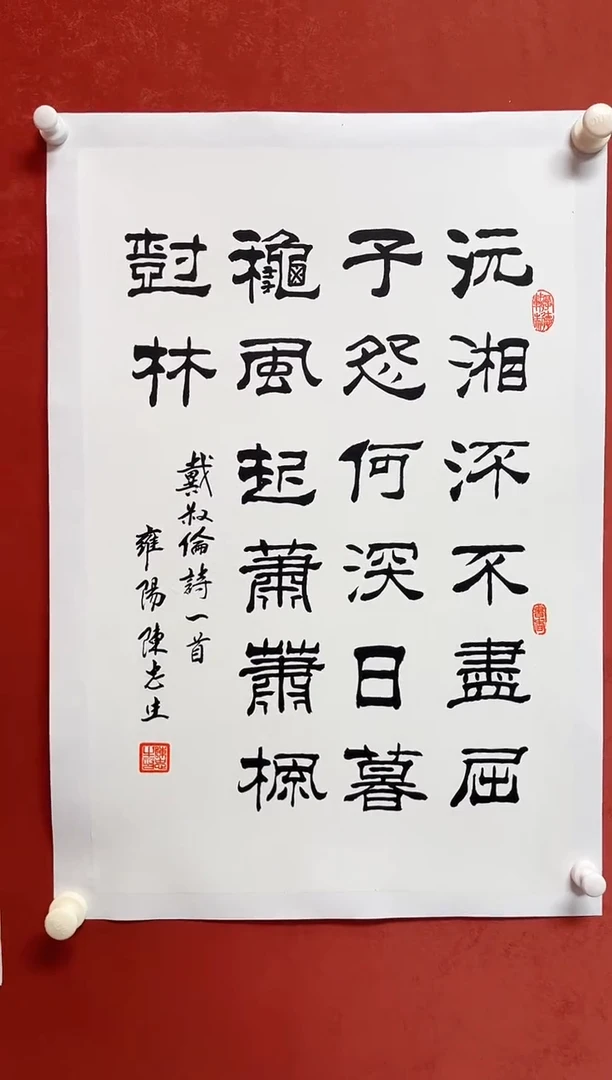 沅湘㳅不盡屈
子怨何深日暮
龝風起蕭蕭楓
樹林
戴叔倫詩一首
雍陽陳志生